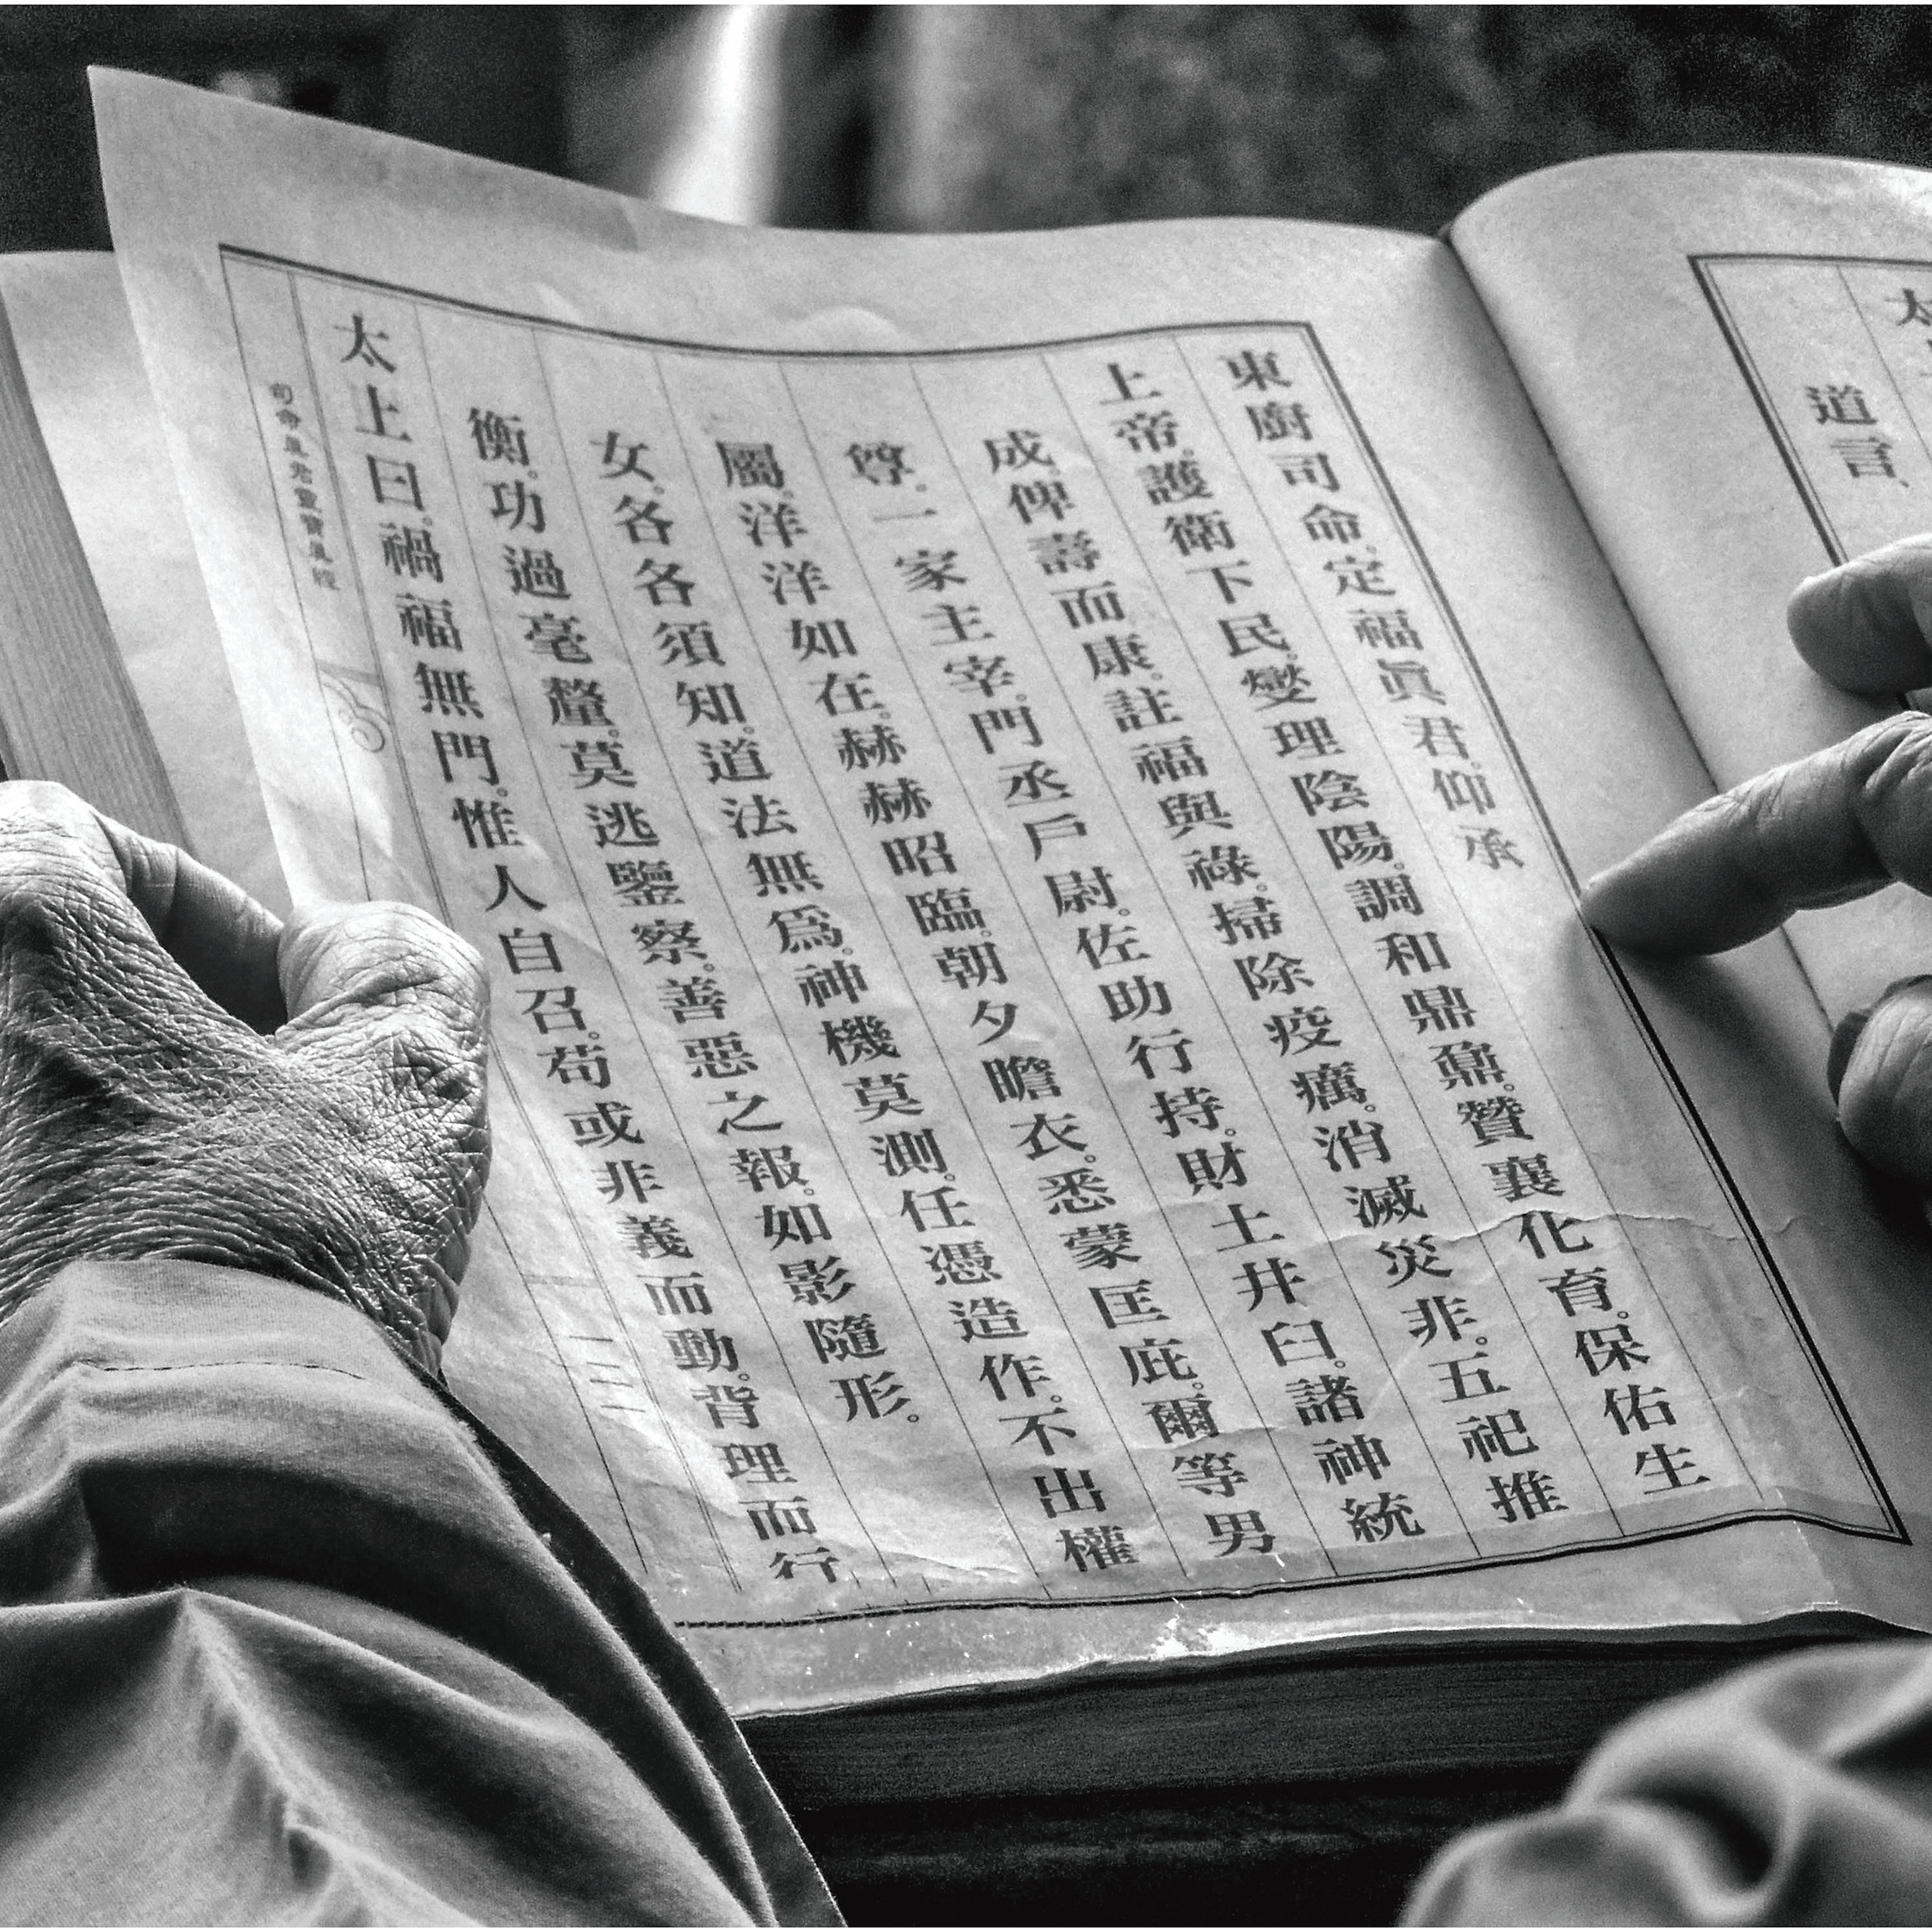 道言、
東廚司命。定福眞君。仰承
上帝。護衛下民。燮理陰陽。調和鼎鼐。贊襄化育。保佑生
成。俾壽而康。註福與祿。掃除疫癘。消滅災非。五祀推
尊。一家主宰。門丞戶尉。佐助行持。財土井臼。諸神統
屬。洋洋如在。赫赫昭臨。朝夕瞻衣。悉蒙匡庇。爾等男
女。各各須知。道法無爲。神機莫測。任憑造作。不出權
衡。功過毫釐。莫逃鑒察。善惡之報。如影隨形。
太上曰。禍福無門。惟人自召。苟或非義而動。背理而行
司命眞君靈寶眞經
一三一